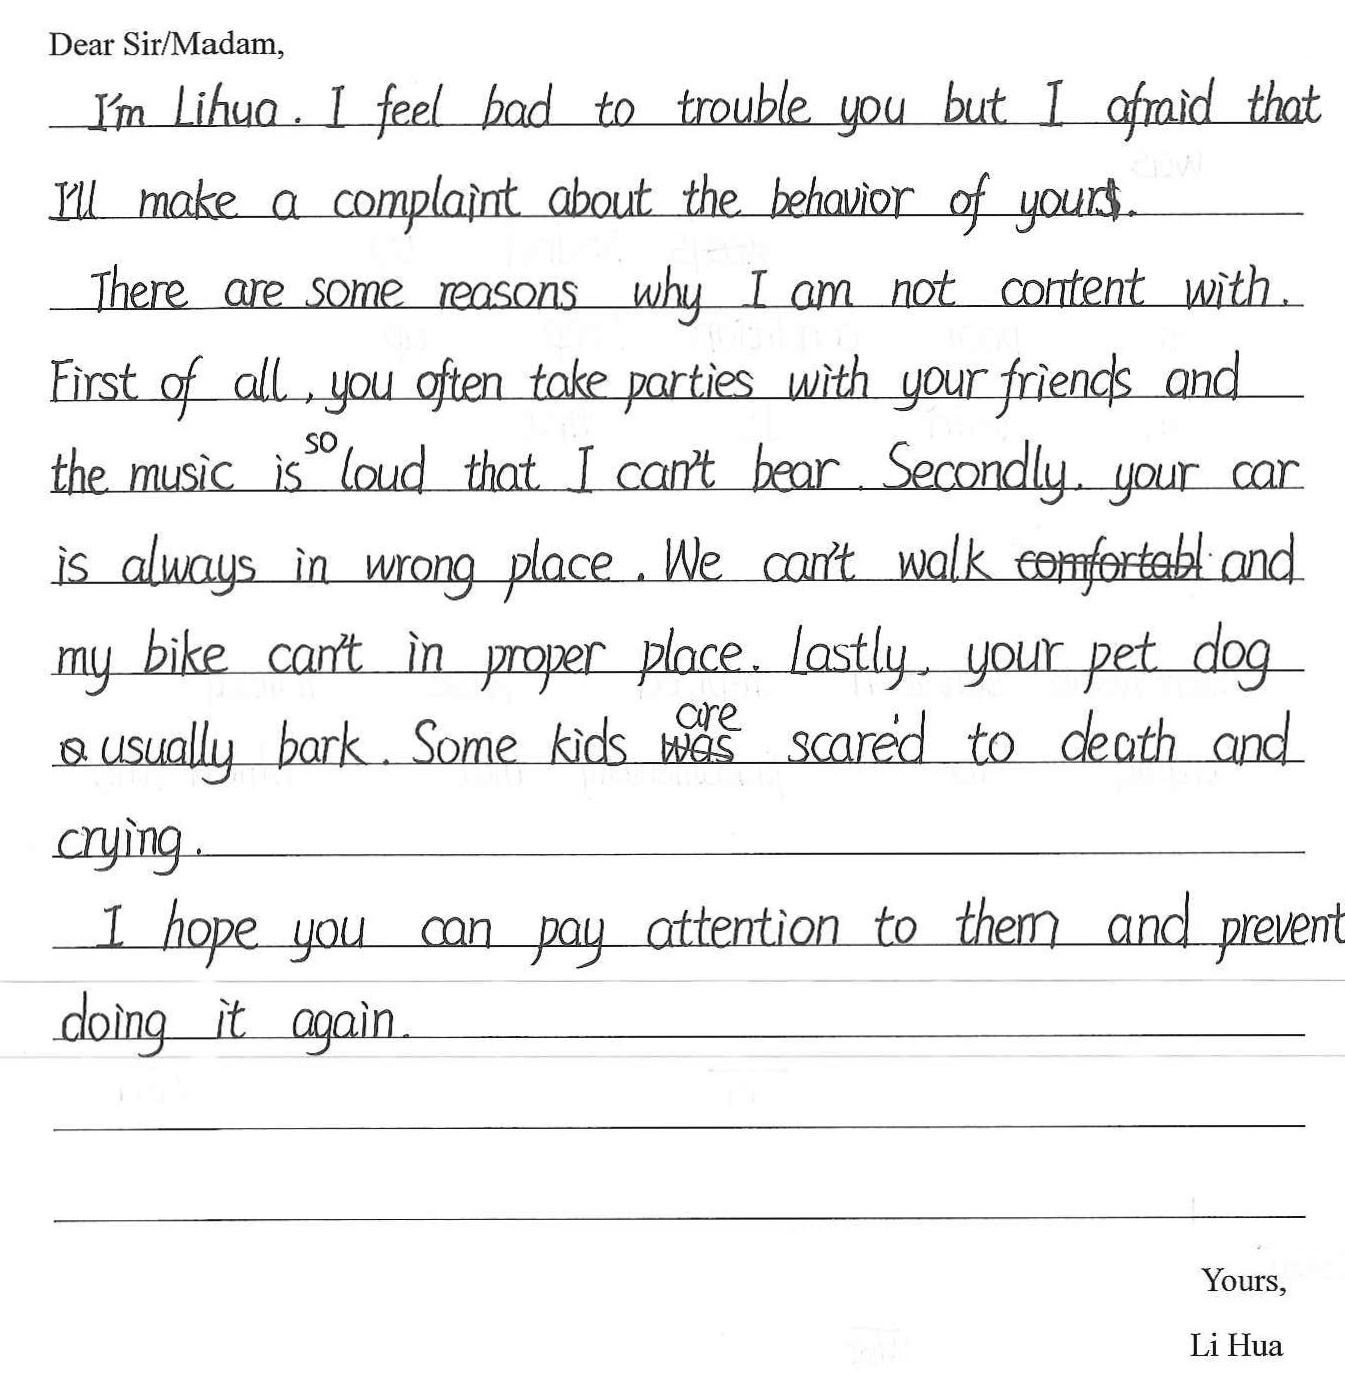 Dear Sir/Madam,
I'm Lihua. I feel bad to trouble you but I afraid that
I'll make a complaint about the behavior of yours.
There are some reasons why I am not content with.
First of all, you often take parties with your friends and
the music is so loud that I can't bear. Secondly, your car
is always in wrong place. We can't walk comfortabl and
my bike can't in proper place. Lastly, your pet dog
usually bark. Some kids was are scared to death and
crying.
I hope you can pay attention to them and prevent
doing it again.
Yours,
Li Hua